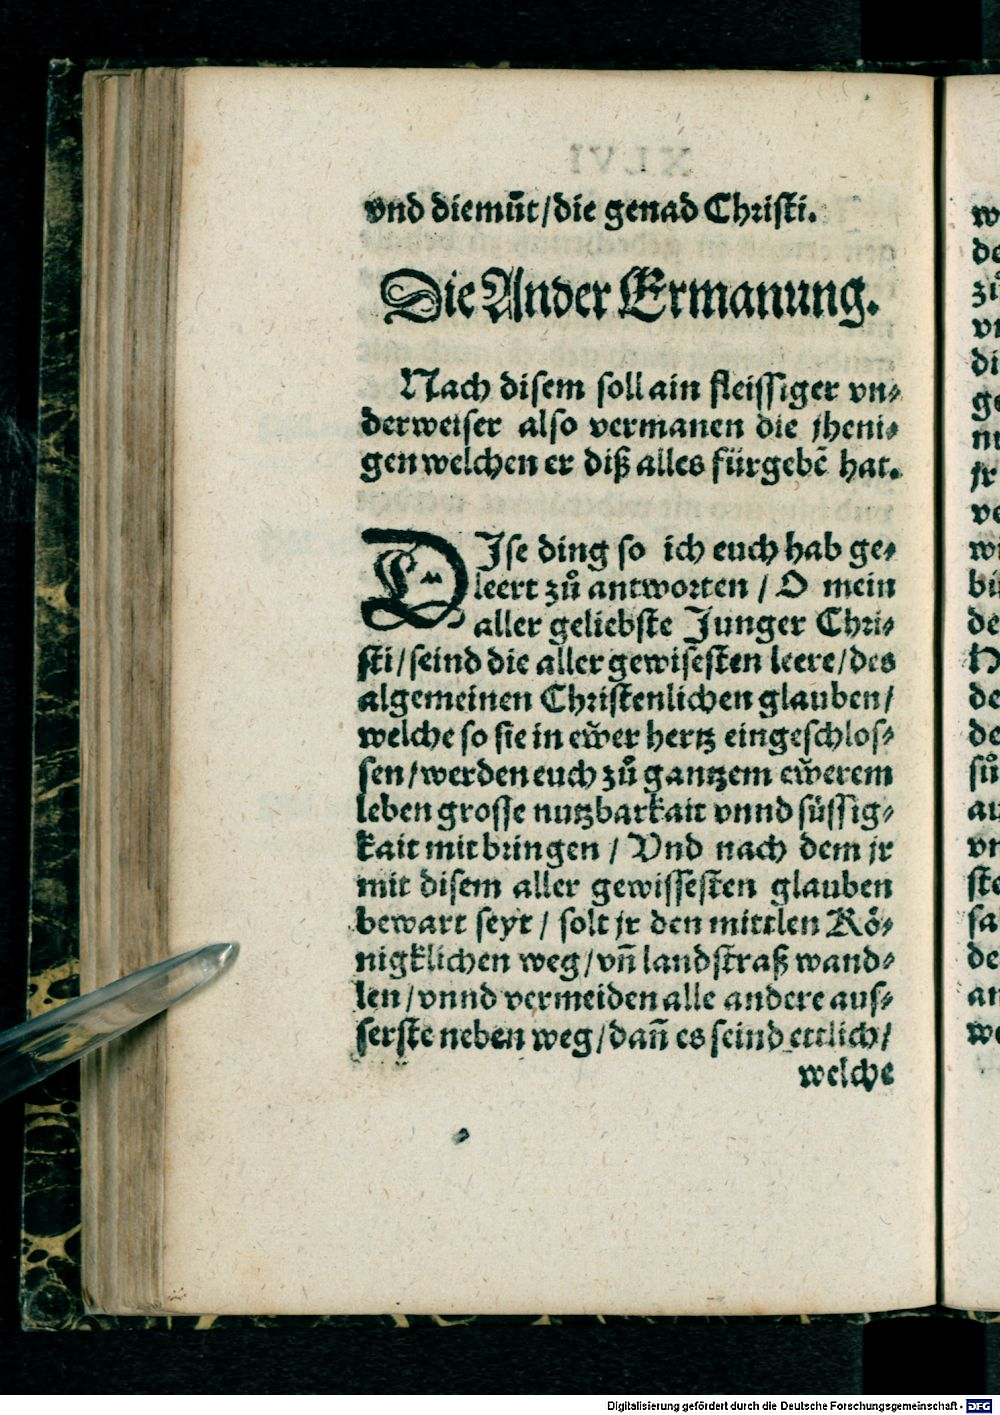 vnd diemuͤt/die genad Christi.
Die Ander Ermanung.
Nach disem soll ain fleissiger vn⸗
derweiser also vermanen die jheni⸗
gen welchen er diß alles fürgebē hat.
DIse ding so ich euch hab ge⸗
leert zuͦ antworten / O mein
aller geliebste Junger Chri⸗
sti/seind die aller gewisesten leere/des
algemeinen Christenlichen glauben/
welche so sie in ew̃er hertz eingeschlos⸗
sen/werden euch zuͦ gantzem ew̃erem
leben grosse nutzbarkait vnnd süssig⸗
kait mit bringen / Vnd nach dem jr
mit disem aller gewissesten glauben
bewart seyt / solt jr den mittlen Koͤ⸗
nigklichen weg/vñ landstraß wand⸗
len/vnnd vermeiden alle andere aus⸗
serste neben weg/dañ es seind ettlich/
welche
Digitalisierung gefördert durch die Deutsche Forschungsgemeinschaft - DFG